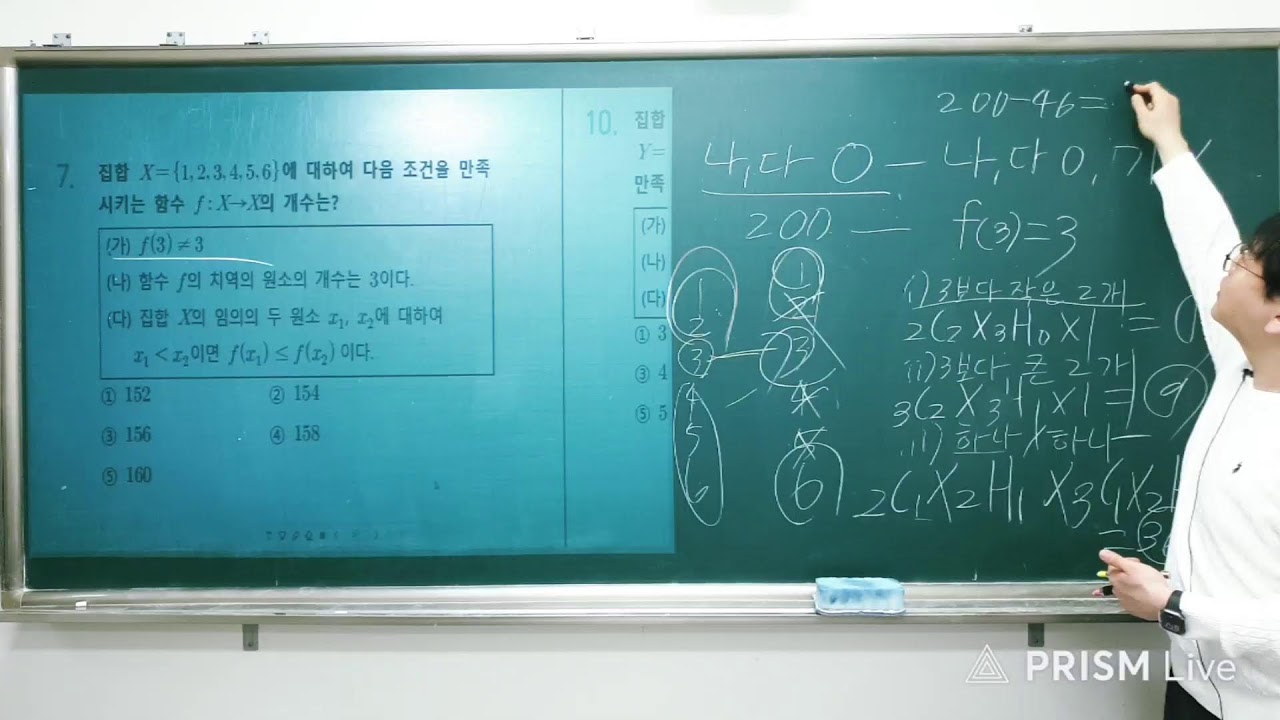 7. 집합 X={1,2,3,4,5,6}에 대하여 다음 조건을 만족
시키는 함수 f : X→X의 개수는?
(가) f(3)≠3
(나) 함수 f의 치역의 원소의 개수는 3이다.
(다) 집합 X의 임의의 두 원소 x₁, x₂에 대하여
x₁<x₂이면 f(x₁)≤f(x₂)이다.
① 152 ② 154
③ 156 ④ 158
⑤ 160
10. 집합
Y=
만족
(가)
(나)
(다)
① 3
③ 4
⑤ 5
200-46=
나,다 0 - 나,다 0, 가 X
200 - f(3)=3
1 1
2
3 3
4 4
5
6 6
i) 3보다 작은 2개
2C2 X 3H0 X 1 = 1
ii) 3보다 큰 2개
3C2 X 3H1 X 1 = 9
하나 X 하나
2C1 X 2H1 X 3C1 X 2H
= 3
PRISM Live